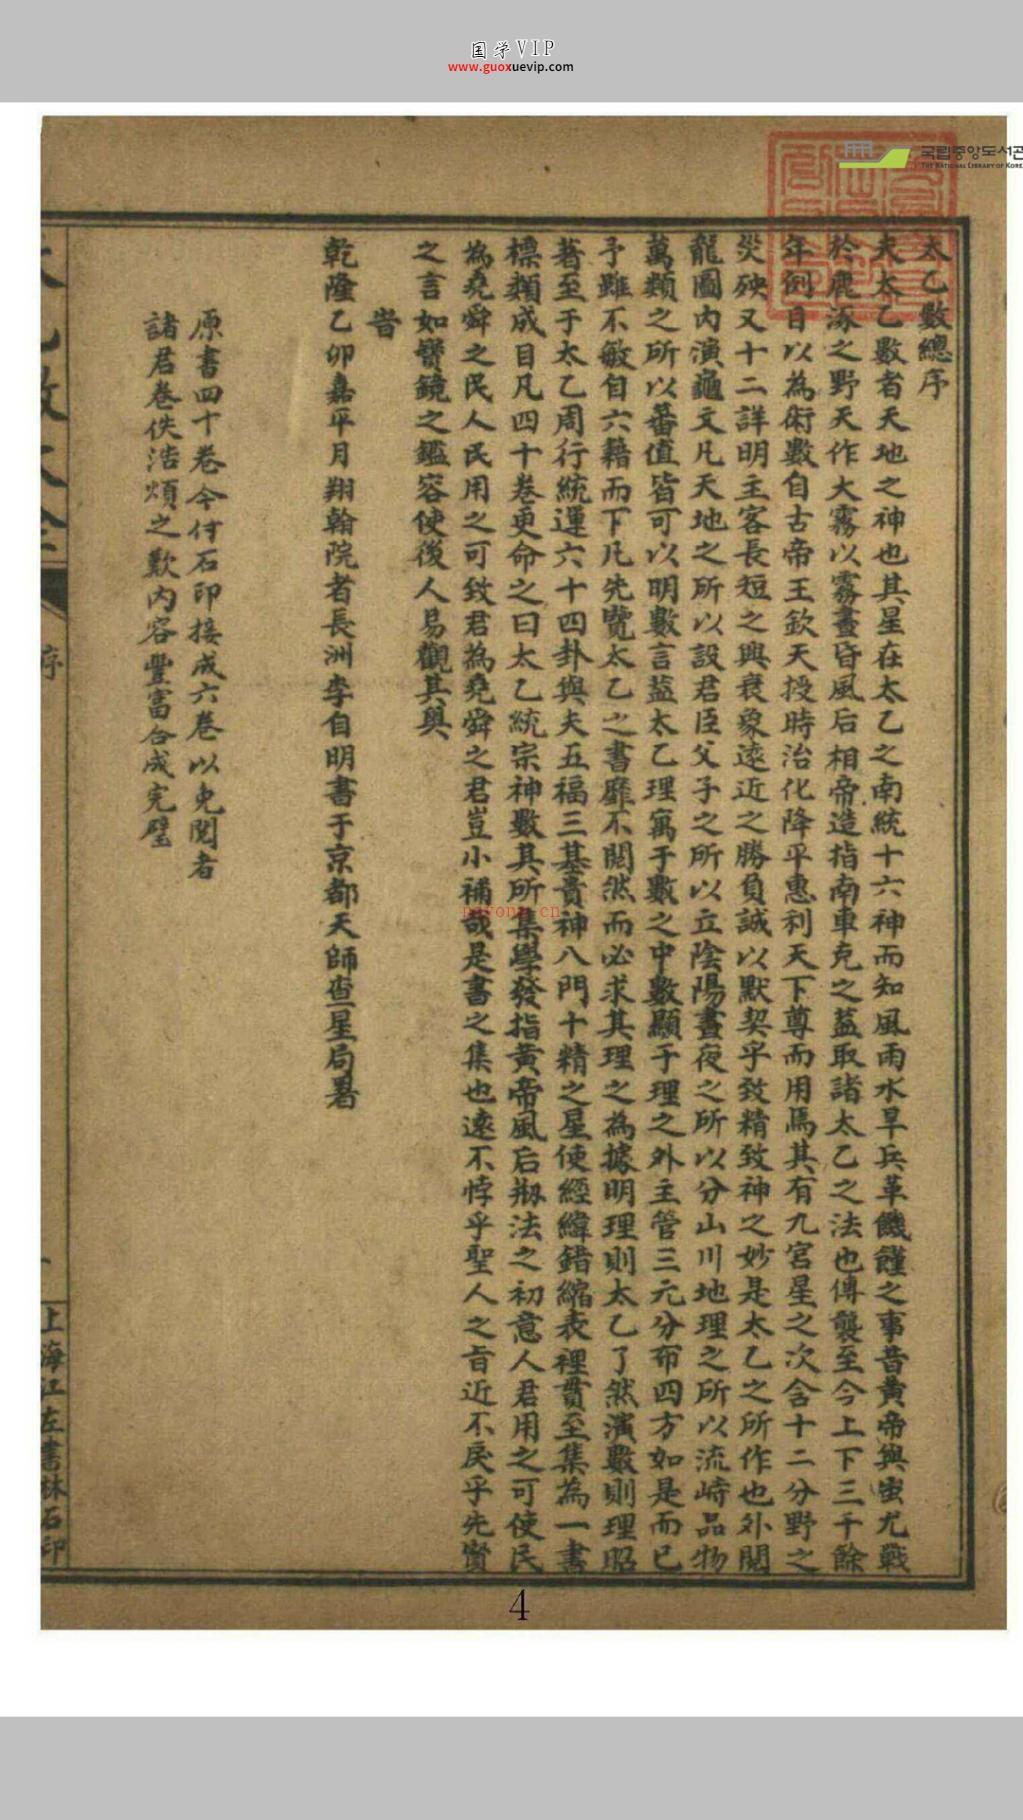 国学VIP
www.guoxuevip.com
국립중앙도서관
THE NATIONAL LIBRARY OF KORE
太乙數總序
夫太乙數者天地之神也其星在太乙之南統十六神而知風雨水旱兵革饑饉之事昔黃帝與蚩尤戰
於鹿涿之野天作大霧以霧晝昏風后相帝造指南車克之葢取諸太乙之法也傳襲至今上下三千餘
年例目以為術數自古帝王欽天授時治化降平惠利天下尊而用焉其有九宮星之次舍十二分野之
災殃又十二詳明主客長短之興衰象遠近之勝負誠以默契乎致精致神之妙是太乙之所作也外閱
龍圖內演龜文凡天地之所以設君臣父子之所以立陰陽晝夜之所以分山川地理之所以流峙品物
萬類之所以蕃值皆可以明數言葢太乙理寓于數之中數顯于理之外主管三元分布四方如是而已
予雖不敏自六籍而下凡先覽太乙之書靡不閱然而必求其理之為據明理則太乙了然演數則理昭
著至于太乙周行統運六十四卦與夫五福三基貴神八門十精之星使經緯錯縮表裡貫至集為一書
標類成目凡四十卷更命之曰太乙統宗神數其所集學發指黃帝風后剏法之初意人君用之可使民
為堯舜之民人民用之可致君為堯舜之君豈小補哉是書之集也遠不悖乎聖人之旨近不戾乎先賢
之言如寶鏡之鑑容使後人易觀其與
旹
乾隆乙卯嘉平月翔翰院者長洲李自明書于京都天師壺星局署
原書四十卷今付石印接成六卷以免閱者
諸君卷佚浩煩之歎內容豐富合成完璧
序
一
上海江左書林石印
nayona.cn
4